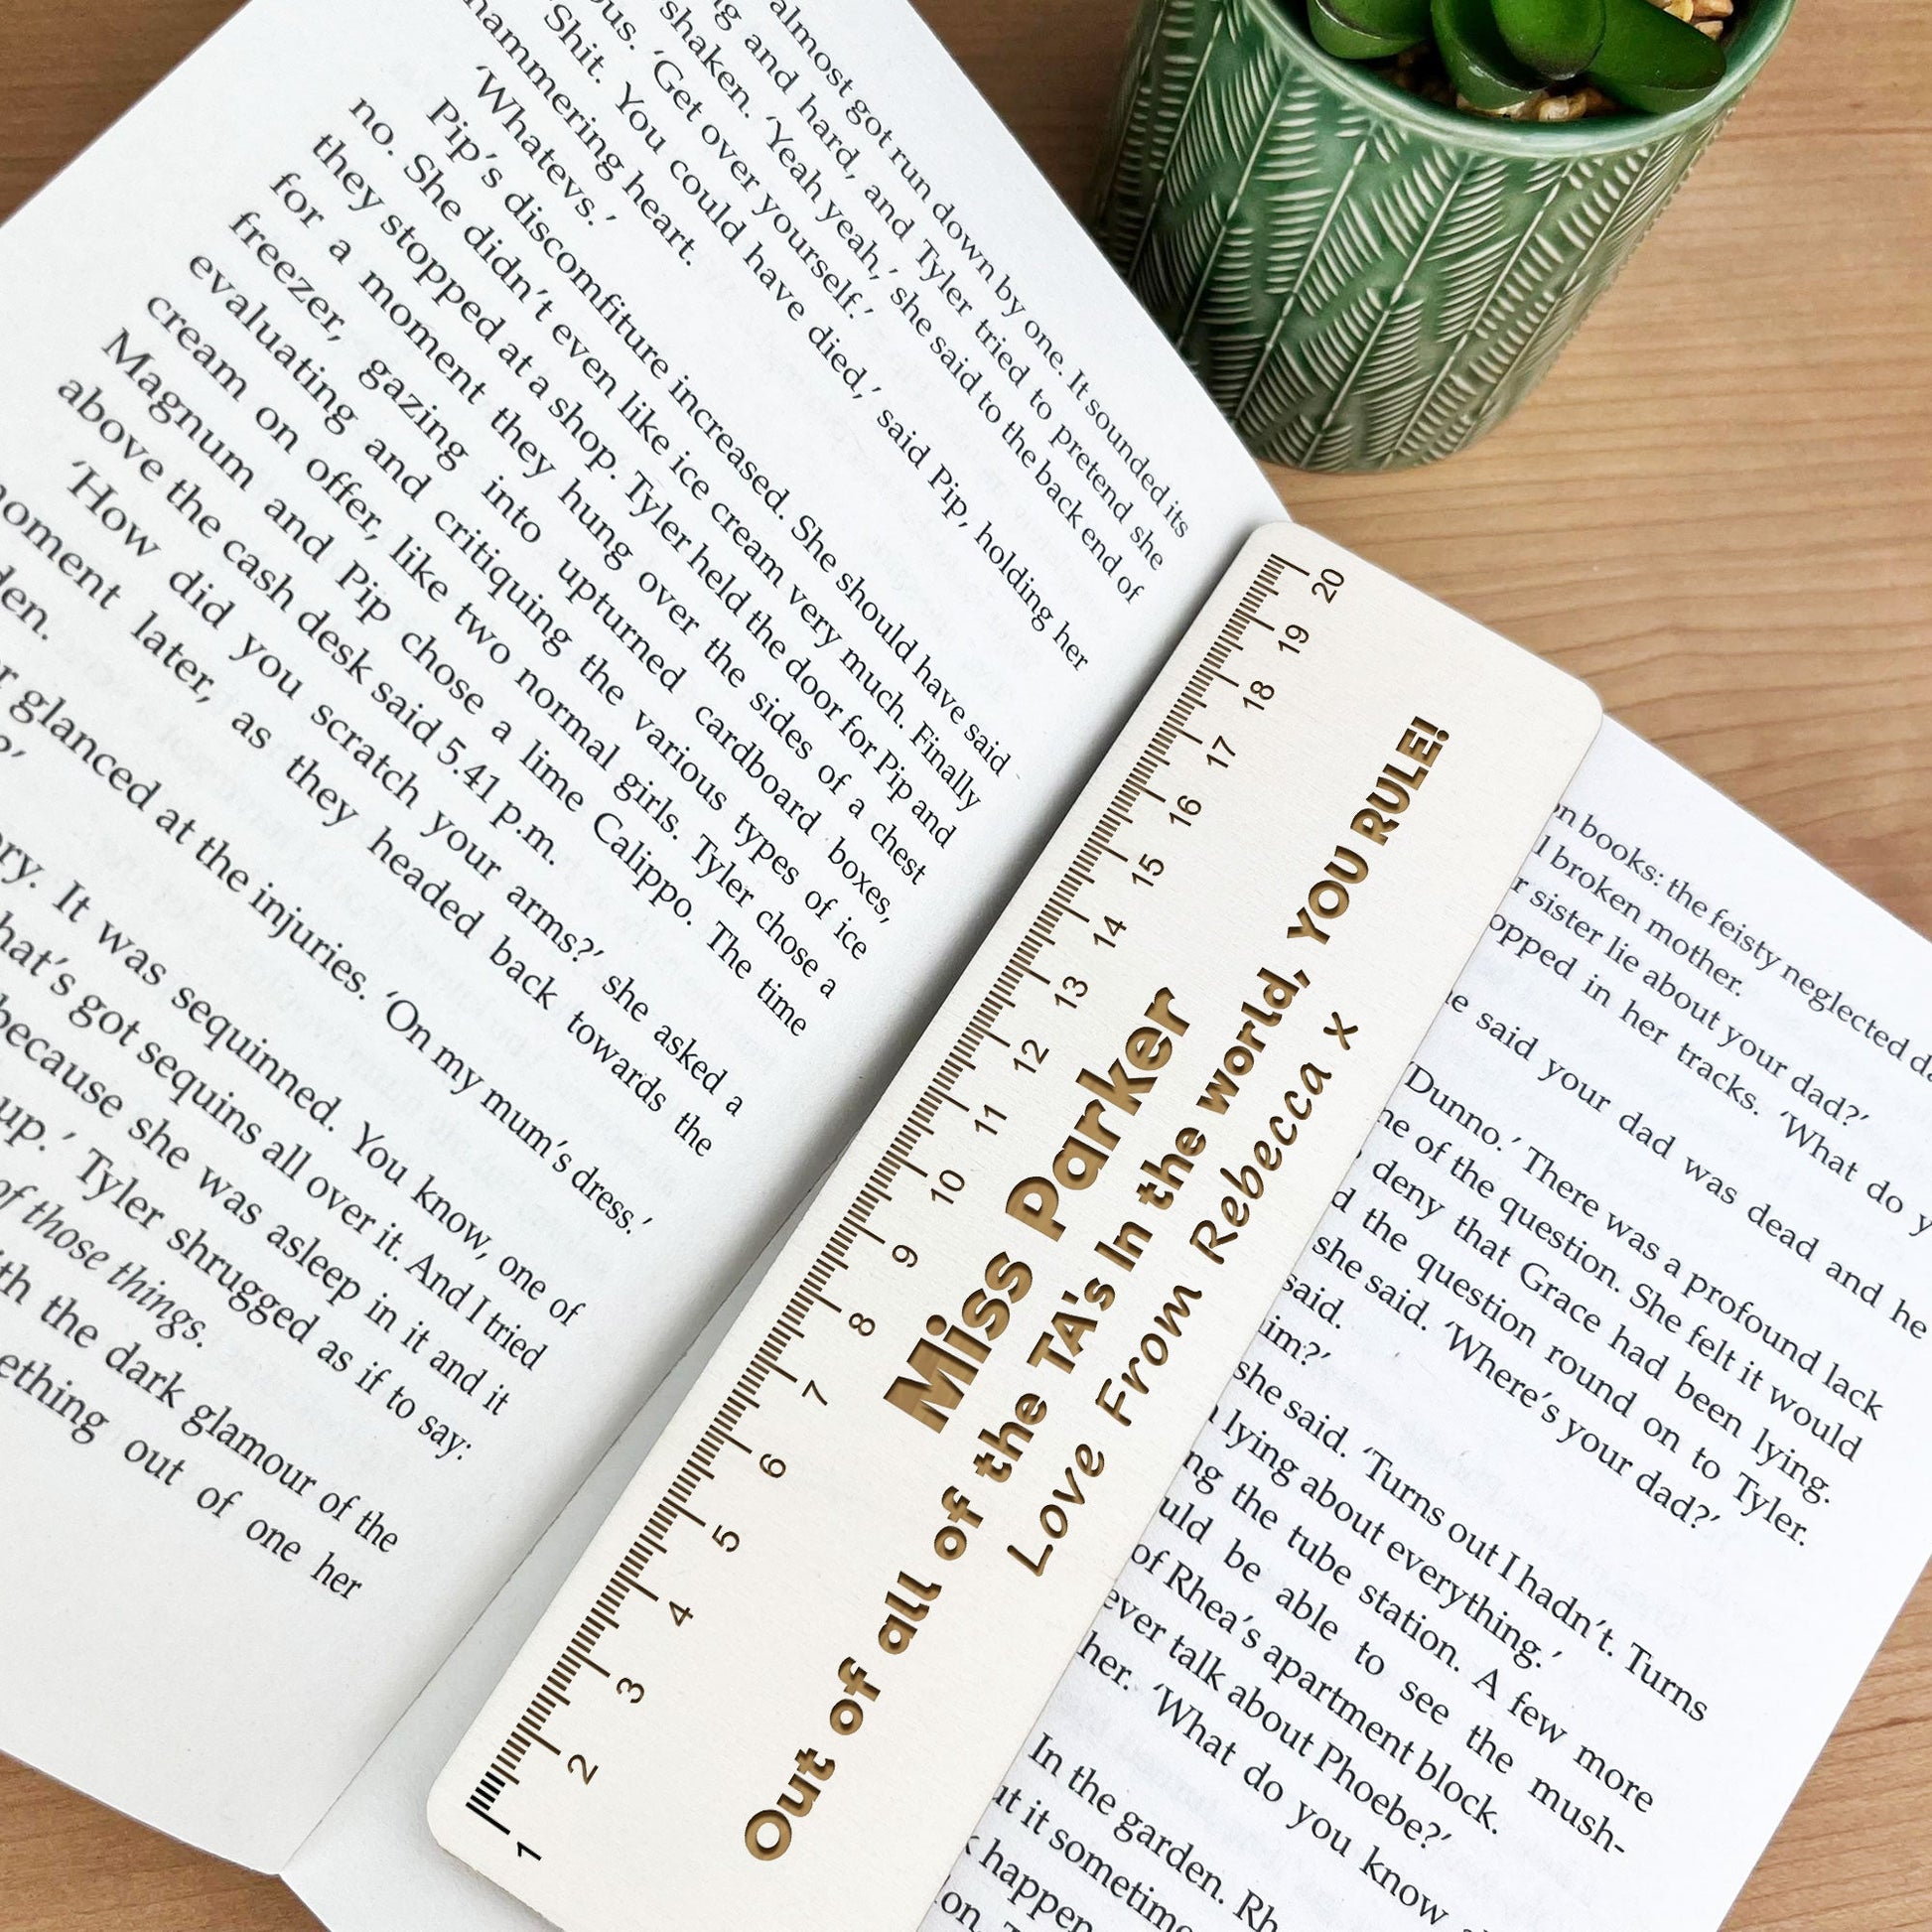 almost got run down by one. It sounded its
ng and hard, and Tyler tried to pretend she
shaken. 'Yeah yeah,' she said to the back end of
ous. 'Get over yourself.'
'Shit. You could have died,' said Pip, holding her
hammering heart.
'Whatevs.'
Pip's discomfiture increased. She should have said
no. She didn't even like ice cream very much. Finally
they stopped at a shop. Tyler held the door for Pip and
for a moment they hung over the sides of a chest
freezer, gazing into upturned cardboard boxes,
evaluating and critiquing the various types of ice
cream on offer, like two normal girls. Tyler chose a
Magnum and Pip chose a lime Calippo. The time
above the cash desk said 5.41 p.m.
'How did you scratch your arms?' she asked a
moment later, as they headed back towards the
den.
r glanced at the injuries. 'On my mum's dress.'
?'
ory. It was sequinned. You know, one of
hat's got sequins all over it. And I tried
because she was asleep in it and it
up.' Tyler shrugged as if to say:
of those things.
th the dark glamour of the
ething out of one her
1 2 3 4 5 6 7 8 9 10 11 12 13 14 15 16 17 18 19 20
Miss Parker
Out of all of the TA's In the world, YOU RULE!
Love From Rebecca x
on books: the feisty neglected da
l broken mother.
r sister lie about your dad?'
opped in her tracks. 'What do y
e said your dad was dead and he
'Dunno.' There was a profound lack
ne of the question. She felt it would
deny that Grace had been lying.
d the question round on to Tyler.
she said. 'Where's your dad?'
said.
im?'
she said. 'Turns out I hadn't. Turns
n lying about everything.'
ng the tube station. A few more
uld be able to see the mush-
of Rhea's apartment block.
ever talk about Phoebe?'
her. 'What do you know
In the garden. Rh
ut it sometime
k happen
on.